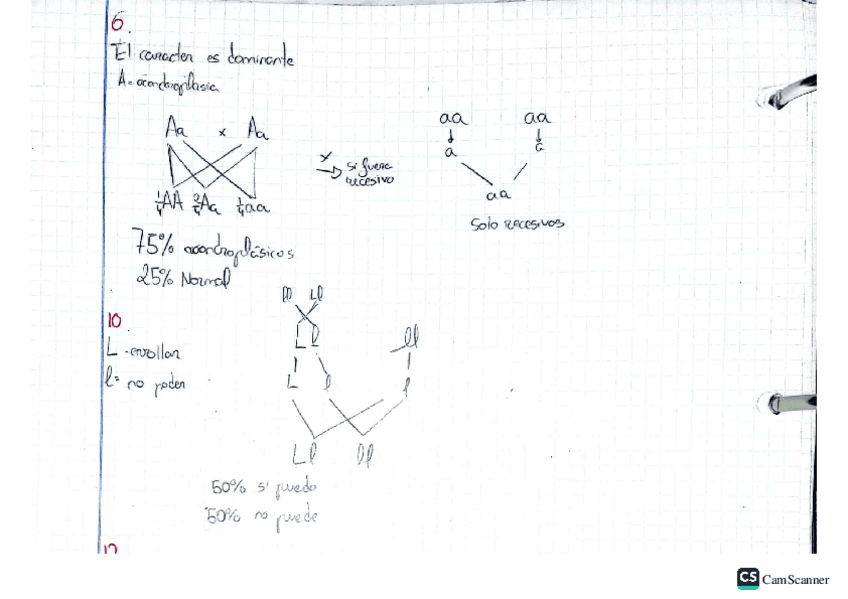 6.
El caracter es dominante
A = acondroplasia
Aa x Aa
1/4 AA 2/4 Aa 1/4 aa
75% acondroplásicos
25% Normal
si fuera
recesivo
aa aa
a a
aa
Solo recesivos
10.
L = enrollar
l = no poder
ll Ll
Ll ll
L l l
Ll ll
50% si puedo
50% no puede
12
CS CamScanner